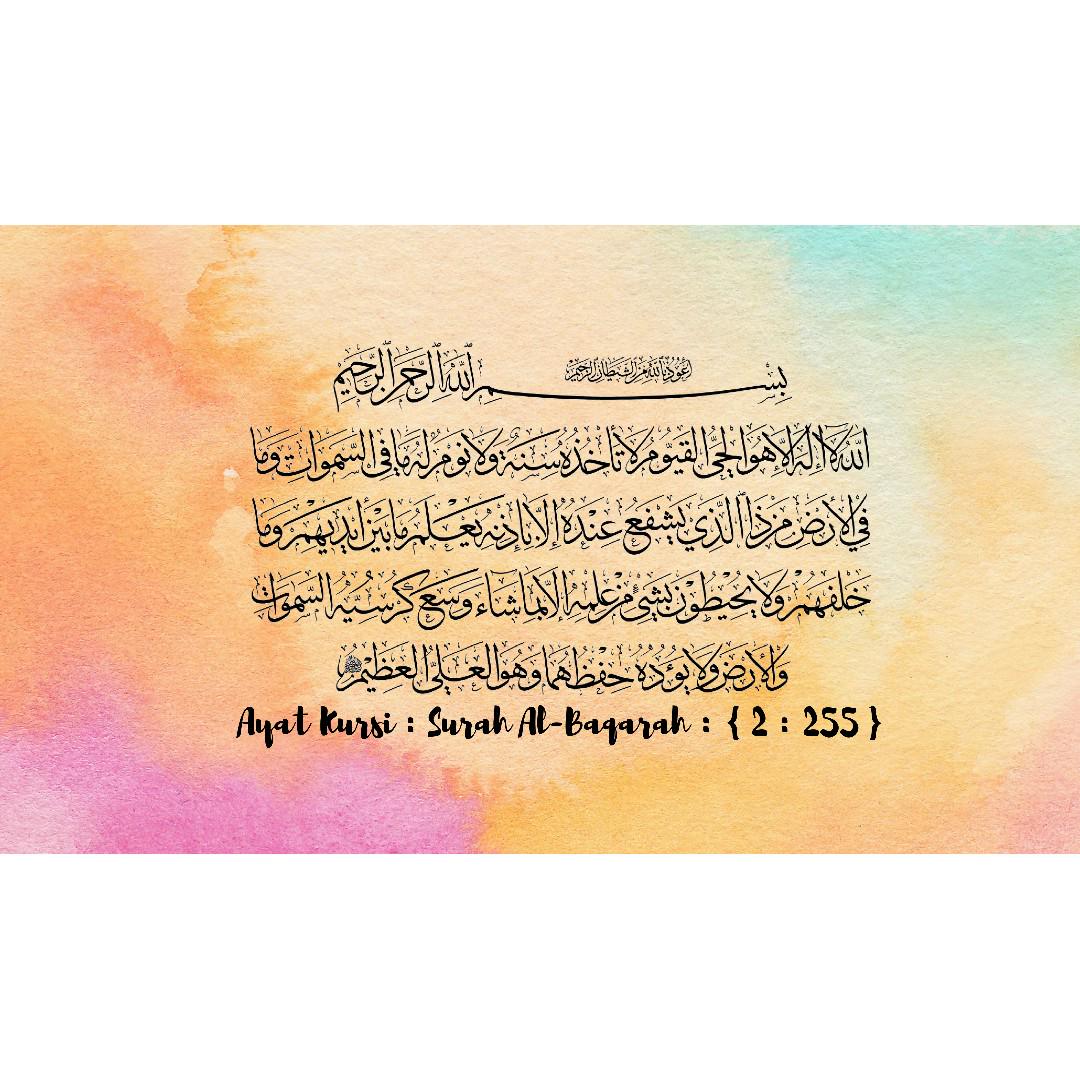 أعوذ بالله من الشيطان الرجيم
بسم الله الرحمن الرحيم
الله لا إله إلا هو الحي القيوم لا تأخذه سنة ولا نوم له ما في السموات وما
في الأرض من ذا الذي يشفع عنده إلا بإذنه يعلم ما بين أيديهم وما
خلفهم ولا يحيطون بشيء من علمه إلا بما شاء وسع كرسيه السموات
والأرض ولا يؤده حفظهما وهو العلي العظيم
Ayat Kursi : Surah Al-Baqarah : { 2 : 255 }